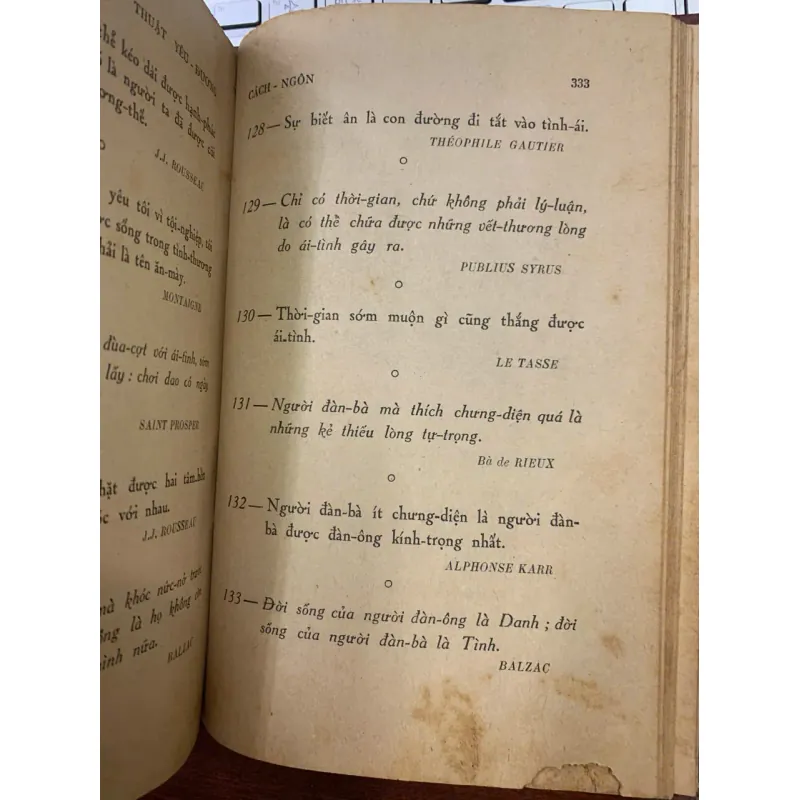 THUẬT YÊU-ĐƯƠNG
kéo dài được hạnh-phúc
là người ta đã được cái
J.J. ROUSSEAU
yêu tôi vì tội-nghiệp, tôi
sống trong tình-thương
là tên ăn-mày.
MONTAIGNE
đùa-cợt với ái-tình, tóm
lấy : chơi dao có ngày
SAINT PROSPER
được hai tâm-hồn
với nhau.
J.J. ROUSSEAU
khóc nức-nở
là họ không
nữa.
BALZAC
CÁCH-NGÔN 333
128— Sự biết ân là con đường đi tắt vào tình-ái.
THÉOPHILE GAUTIER
129— Chỉ có thời-gian, chứ không phải lý-luận,
là có thể chữa được những vết-thương lòng
do ái-tình gây ra.
PUBLIUS SYRUS
130— Thời-gian sớm muộn gì cũng thắng được
ái-tình.
LE TASSE
131— Người đàn-bà mà thích chưng-diện quá là
những kẻ thiếu lòng tự-trọng.
Bà de RIEUX
132— Người đàn-bà ít chưng-diện là người đàn-
bà được đàn-ông kính-trọng nhất.
ALPHONSE KARR
133— Đời sống của người đàn-ông là Danh ; đời
sống của người đàn-bà là Tình.
BALZAC